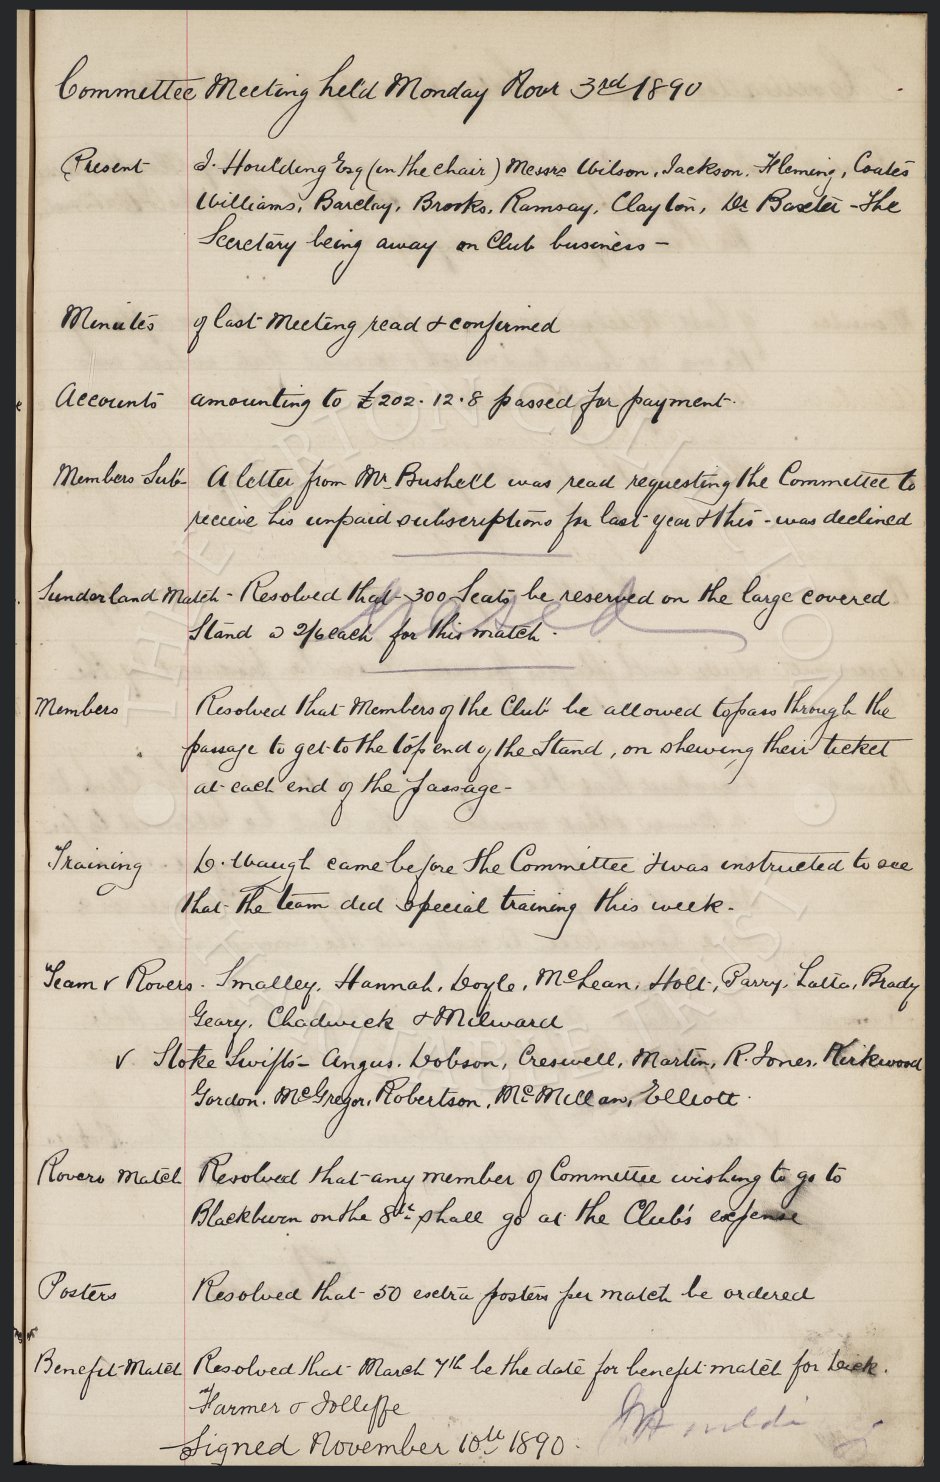 Committee Meeting held Monday Novr 3rd 1890
Present J. Houlding Esq (in the chair) Messrs Wilson, Jackson, Fleming, Coates
Williams, Barclay, Brooks, Ramsay, Clayton, Dr Baxter - The
Secretary being away on Club business -
Minutes of last Meeting read & confirmed
Accounts amounting to £202.12.8 passed for payment.
Members Sub A letter from Mr Bushell was read requesting the Committee to
receive his unpaid subscriptions for last year & this - was declined
Sunderland Match - Resolved that 300 Seats be reserved on the large covered
Stand @ 2/6 each for this match.
Members Resolved that Members of the Club be allowed to pass through the
passage to get to the top end of the Stand, on shewing their ticket
at each end of the passage -
Training D. Waugh came before the Committee & was instructed to see
that the team did special training this week.
Team v Rovers. Smalley, Hannah, Doyle, McLean, Holt, Parry, Latta, Brady
Geary, Chadwick & Milward
v Stoke Swifts - Angus, Dobson, Creswell, Martin, R. Jones, Kirkwood
Gordon, McGregor, Robertson, McMillan, Elliott.
Rovers Match Resolved that any member of Committee wishing to go to
Blackburn on the 8th shall go at the Club's expense
Posters Resolved that 50 extra posters per match be ordered
Benefit Match Resolved that March 7th be the date for benefit match for Dick.
Farmer & Jolliffe
Signed November 10th 1890.
J Houlding